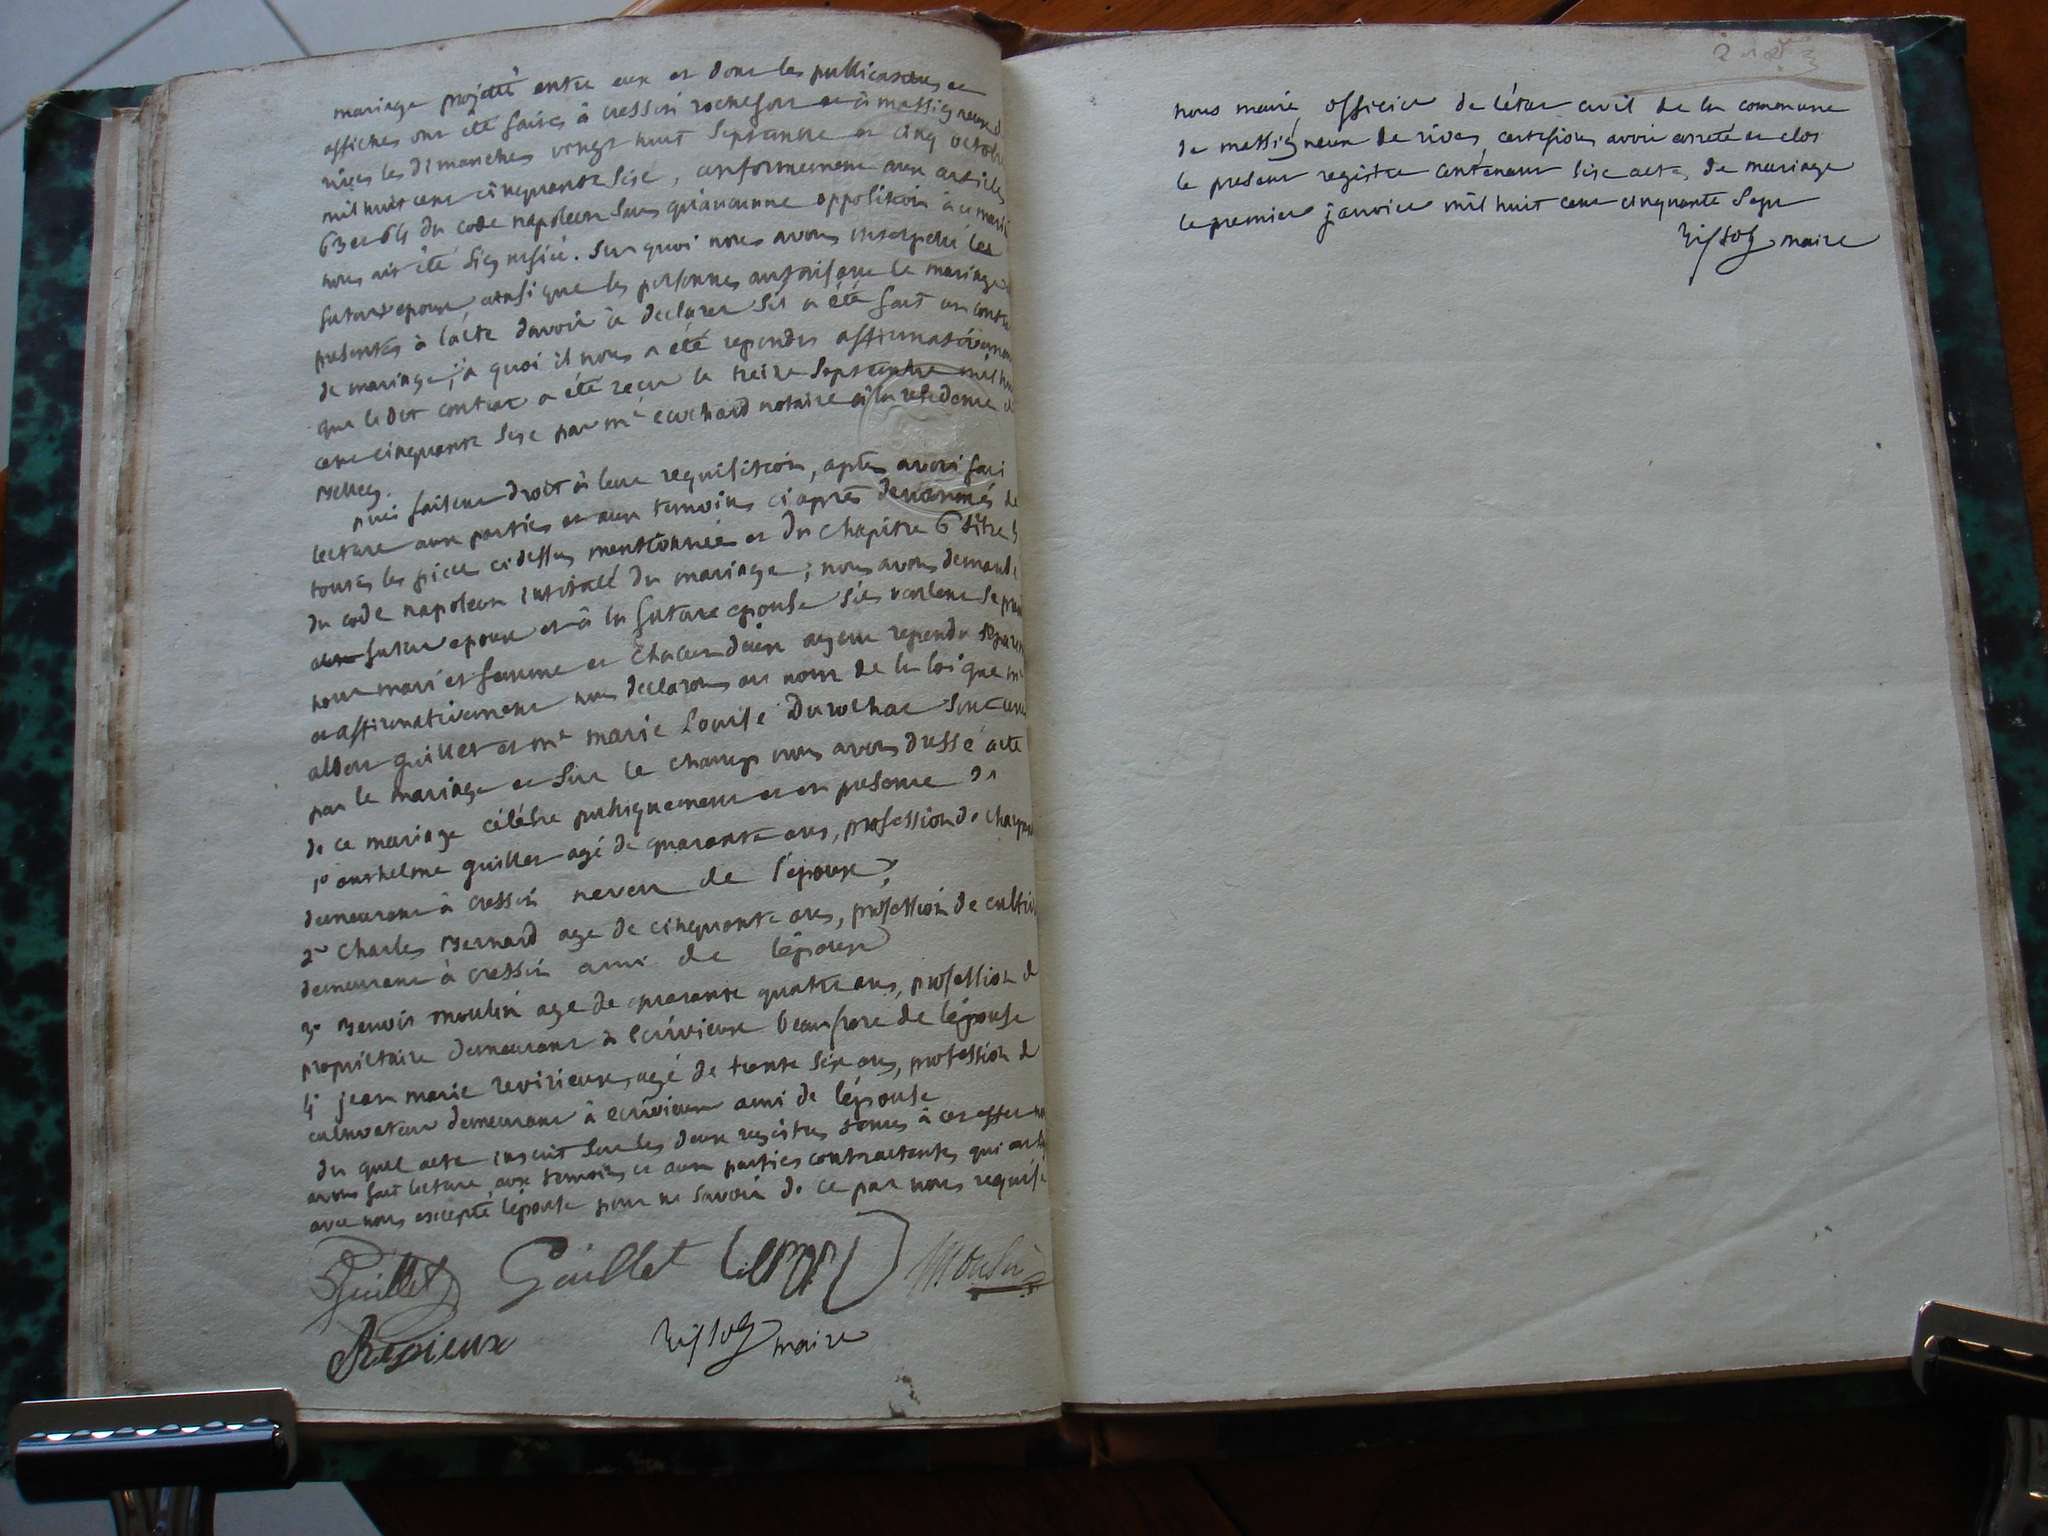 mariage projetté entre eux et dont les publications et
affiches ont été faites à cressin rochefort et à massigneux d
rives les dimanches vingt huit septembre et cinq octobre
mil huit cent cinquante sise, conformement aux articles
63 et 64 du code napoleon sans qu'aucunne opposition à ce maria
nous ait été signifié. sur quoi nous avons interpellé les
futurs epoux ainsi que les personnes autorisant le mariage
presentes à l'acte d'avoir à declarer s'il a été fait un contra
de mariage; à quoi il nous a été repondu affirmativement
que le dit contrat a été reçu le treize septembre mil hui
cent cinquante sise par me cuchard notaire à la residence d
Belley.
puis faisant droit à leur requisition, après avoir fai
lecture aux parties et aux temoins ci après denommés de
toutes les piece ci dessus mentionnée et du chapitre 6 titre 5
du code napoleon intitulé du mariage; nous avons demandé
au futur epoux et à la future epouse s'ils veulent se pren
pour mari et femme et chacun d'eux ayant repondu separem
et affirmativement nous declarons au nom de la loi que mr
albert guillet et me marie Louise Durochat sont unis
par le mariage et sur le champ nous avons dressé acte
de ce mariage célébré publiquement et en presence de
1o anthelme guillet agé de quarante ans, profession de charpen
demeurant à cressin neveu de l'époux
2o Charles Bernard age de cinquante ans, profession de cultiv
demeurant à cressin ami de l'époux
3o Benoit moulin age de quarante quatre ans, profession de
propriétaire demeurant à ecrivieux beaufrere de l'épouse
4o jean marie revirieux, agé de trente six ans, profession de
cultivateur demeurant à ecrivieux ami de l'épouse
du quel acte inscrit sur les deux registres tenus à cet effet no
avons fait lecture aux temoins et aux parties contractantes qui ont
avec nous excepté l'épouse pour ne savoir de ce par nous requise
Guillet Guillet Moulin
Revirieux maire
nous maire officier de l'état civil de la commune
de massigneux de rives, certifions avoir arreté et clos
le present registre contenant sise actes de mariage
le premier janvier mil huit cent cinquante sept
maire